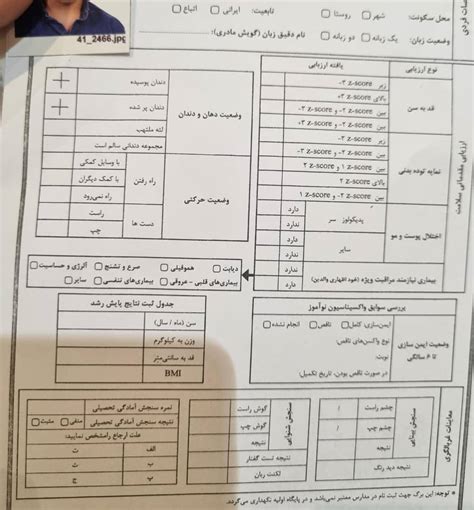 41_2466.jpg
صات فردی
محل سکونت: شهر روستا تابعیت: ایرانی اتباع
وضعیت زبان: یک زبانه دو زبانه نام دقیق زبان (گویش مادری):
ارزیابی مقدماتی سلامت
نوع ارزیابی یافته ارزیابی
قد به سن
زیر ۳- z-score
بالای ۳+ z-score
بین ۲- z-score و ۳-
بین ۲- z-score و ۳+
نمایه توده بدنی
زیر ۳- z-score
بین ۲- z-score و ۳-
بین ۱ z-score و ۲
بالای ۲ z-score
بین ۲- z-score و ۱
اختلال پوست و مو
پدیکولوز سر دارد
ندارد
سایر دارد
ندارد
بیماری نیازمند مراقبت ویژه (خود اظهاری والدین) دارد
ندارد
وضعیت دهان و دندان
دندان پوسیده +
دندان پر شده +
لثه ملتهب
مجموعه دندانی سالم است
وضعیت حرکتی
راه رفتن
با وسایل کمکی
با کمک دیگران
راه نمی‌رود
دست ها
راست
چپ
دیابت هموفیلی صرع و تشنج آلرژی و حساسیت
بیماری‌های قلبی - عروقی بیماری‌های تنفسی سایر
بررسی سوابق واکسیناسیون نوآموز
وضعیت ایمن سازی تا ۶ سالگی
ایمن‌سازی: کامل ناقص انجام نشده
نوع واکسن‌های ناقص:
نوبت:
در صورت ناقص بودن، تاریخ تکمیل:
جدول ثبت نتایج پایش رشد
سن (ماه / سال)
وزن به کیلوگرم
قد به سانتی‌متر
BMI
معاینات غربالگری
سنجش بینایی
چشم راست /
چشم چپ /
نتیجه
نتیجه دید رنگ
سنجش شنوایی
گوش راست
گوش چپ
نتیجه
نتیجه تست گفتار
لکنت زبان
نمره سنجش آمادگی تحصیلی
نتیجه سنجش آمادگی تحصیلی منفی مثبت
علت ارجاع رامشخص نمایید:
الف ت
ب ث
پ ج
* توجه: این برگ جهت ثبت نام در مدارس معتبر نمی‌باشد و در پایگاه اولیه نگهداری می‌گردد.